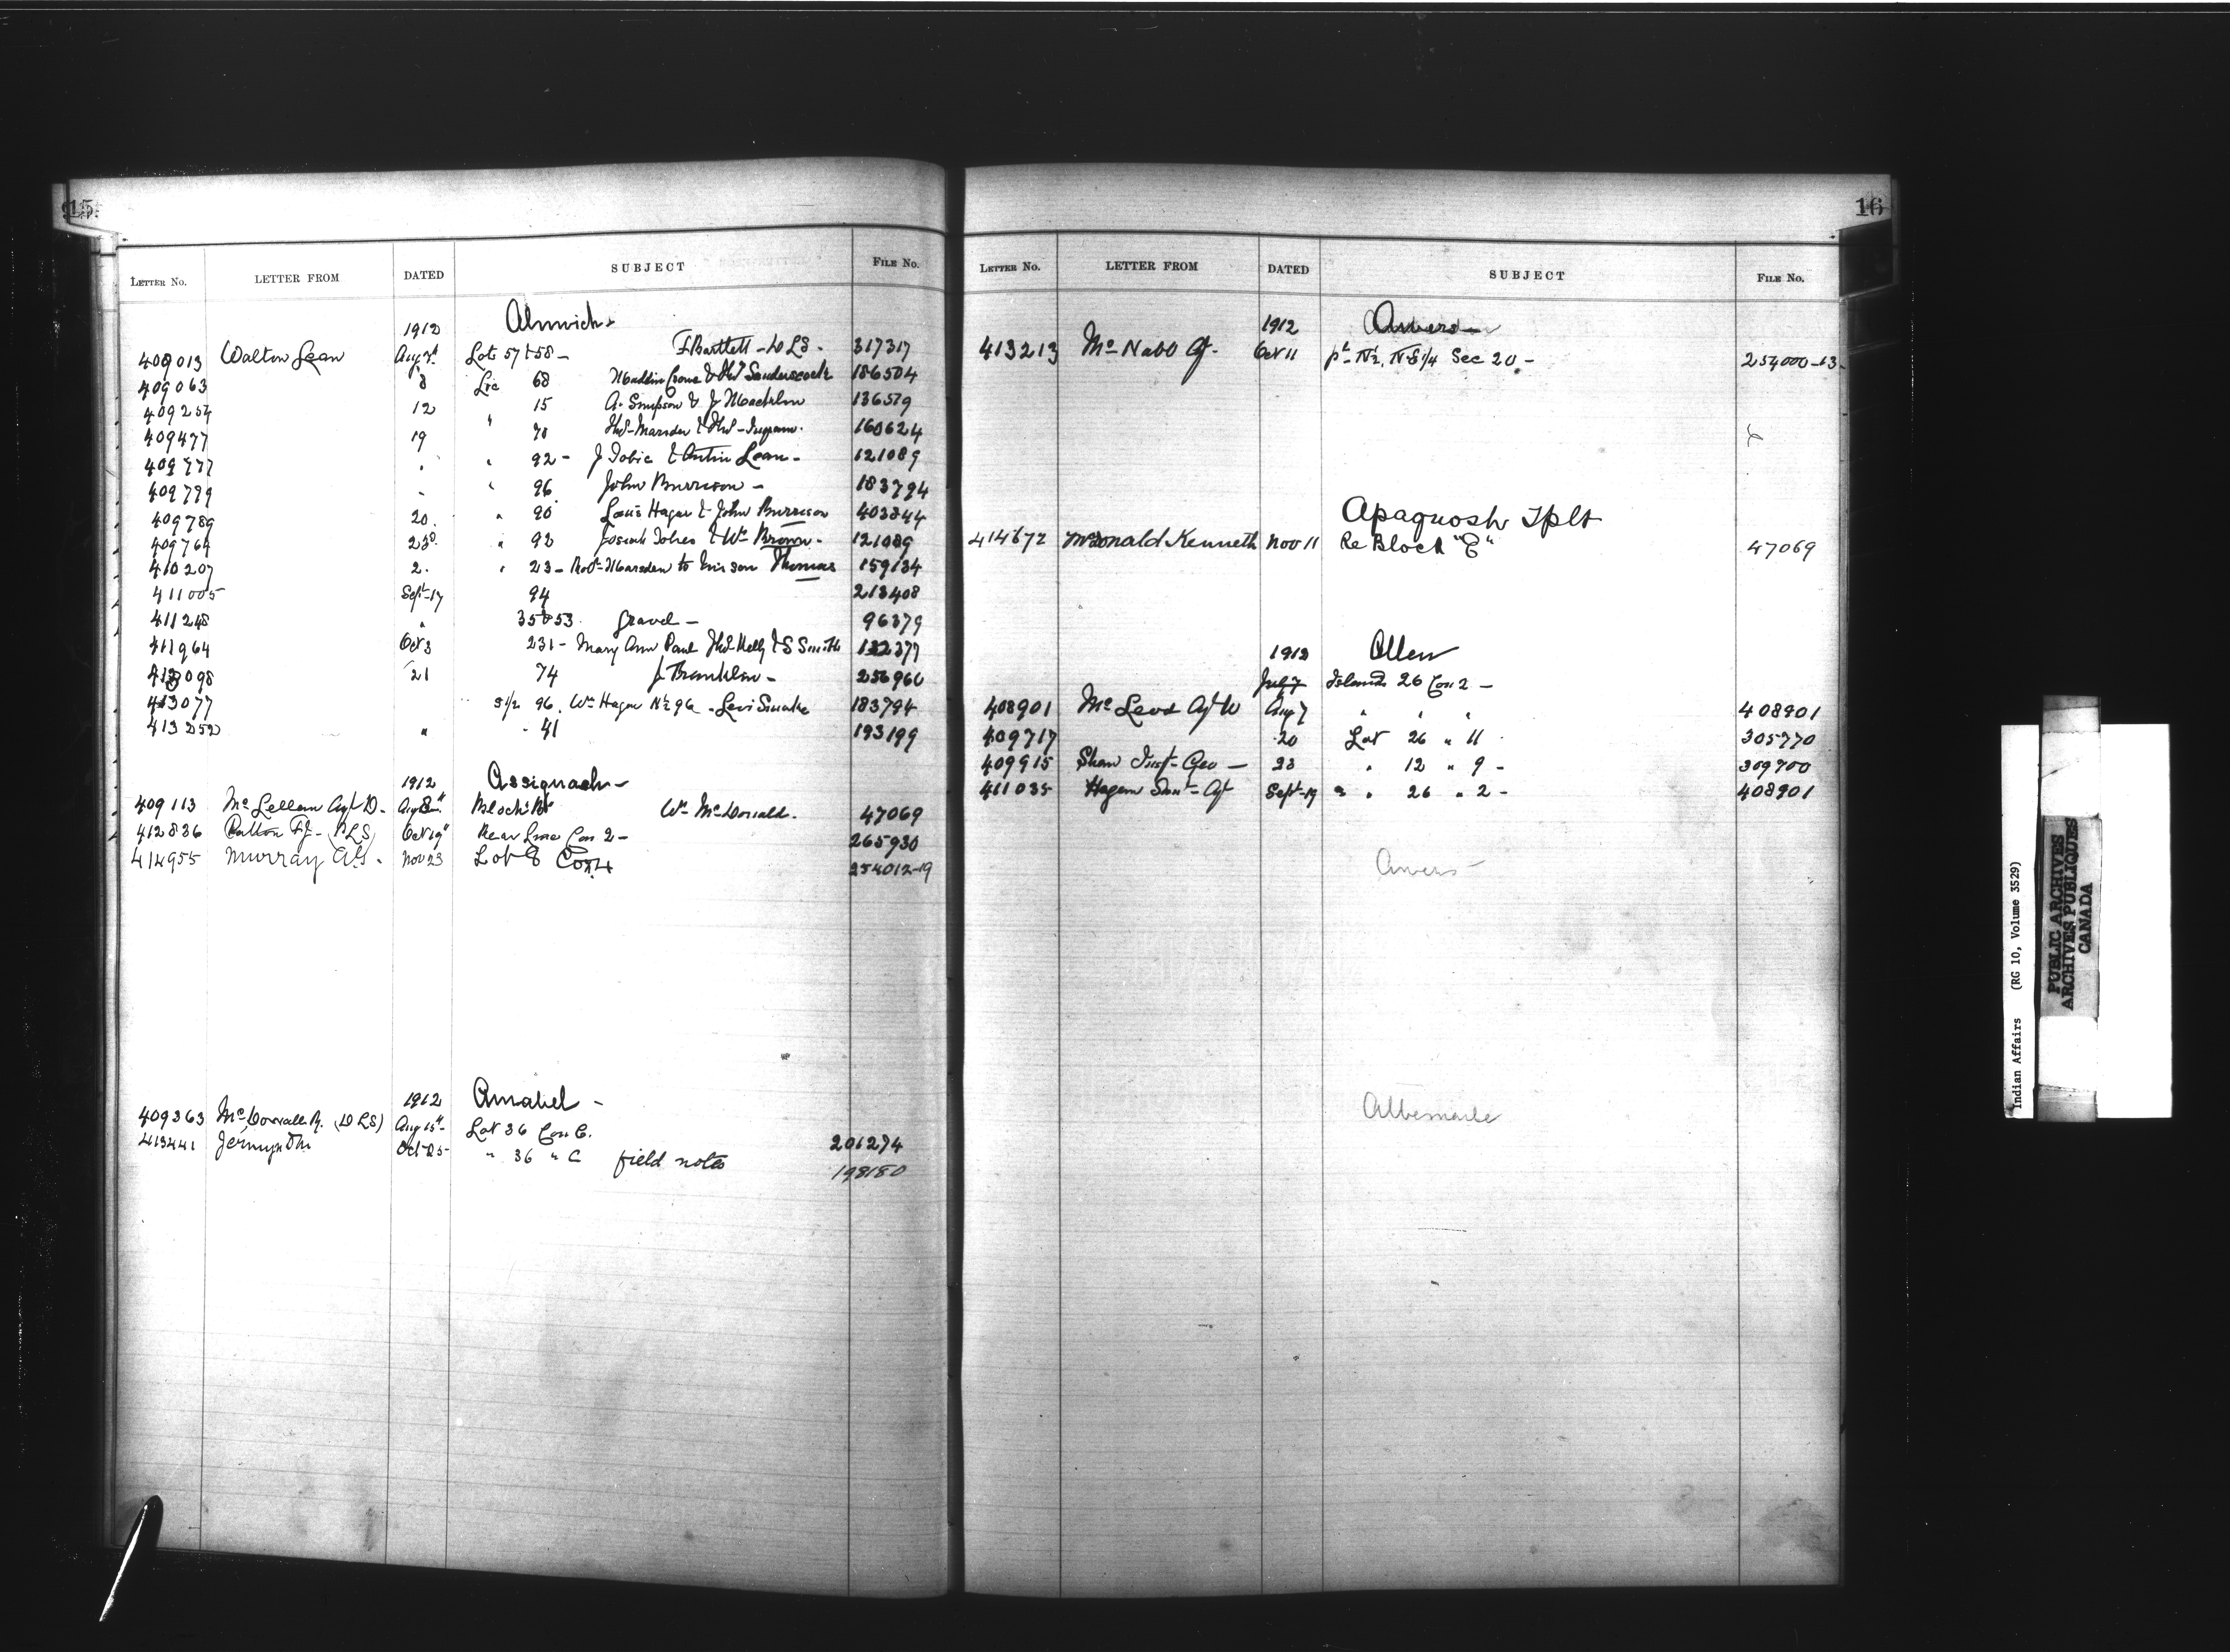 15
LETTER NO. LETTER FROM DATED SUBJECT FILE NO.
1912 Alnwick
409013 Walton Lean Aug 7th Lots 57 & 58 - F Bartlett - DLS - 317317
409063 8 Lic 68 & Thos Sanderscock 186504
409254 12 " 15 A. Simpson & J 136519
409477 19 70 Thos Marsden & Thos Ingram. 160624
409777 " " 92 - J Tobic & Lean - 121089
409799 - " 96 John Burrison - 183794
409789 20. " 90 Louis Hagar & John Burrison 403344
409764 23 " 92 & Wm Brown - 121089
410207 2. " 23 - Robt Marsden to Thomas 159134
411005 Sept 17 94 213408
411248 " 35 & 53 gravel - 96379
411964 Oct 3 231 - Mary Ann Paul Thos Kelly & S Smith 132377
413098 21 74 J Franklin - 256966
413077 S1/2 96. Wm Hagar N1/2 96 - Levi Smoke 183794
413252 " - 41 193199
1912 Assiginack -
409113 McLellan Agt D. Aug 8th Block Wm McDonald. 47069
412836 Patton FJ - (DLS) Oct 19th Rear Line Con 2 - 265930
414955 Murray Nov 23 Lot 8 Con 4 254012-19
1912 Amabel -
409363 (DLS) Aug 15th Lot 36 Con C. 201274
413441 Jermyn Oct 25 " 36 " C field notes 198180
16
LETTER NO. LETTER FROM DATED SUBJECT FILE NO.
1912 Awers
413213 McNabb Agt. Oct 11 pt N1/2, N E 1/4 Sec 20 - 254000-13
Apaquosh Tplt
414672 McDonald Kenneth Nov 11 Re Block "C" 47069
1912 Allen
July 7 Island 26 Con 2 -
408901 McLeod Agt W Aug 7 " " " 408901
409717 20 Lot 26 " 11 305770
409915 Shaw Geo - 23 " 12 " 9 - 309700
411035 Hagan Agt Sept 19 " " 26 " 2 - 408901
Awers
Albemarle
Indian Affairs (RG 10, Volume 3529)
PUBLIC ARCHIVES
ARCHIVES PUBLIQUES
CANADA